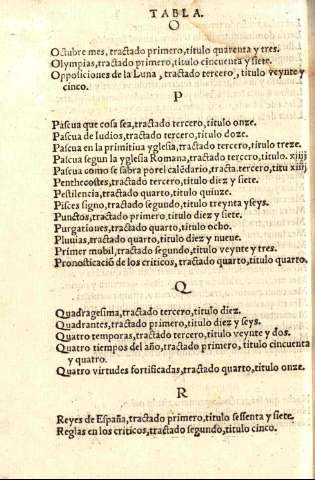 TABLA.
O
Octubre mes, tractado primero, titulo quarenta y tres.
Olympias, tractado primero, titulo cincuenta y siete.
Opposiciones de la Luna, tractado tercero, titulo veynte y
cinco.
P
Pascua que cosa sea, tractado tercero, titulo onze.
Pascua de Iudios, tractado tercero, titulo doze.
Pascua en la primitiua yglesia, tractado tercero, titulo treze.
Pascua segun la yglesia Romana, tractado tercero, titulo. xiiij
Pascua como se sabra por el calēdario, tracta. tercero, titu xiiij
Penthecostes, tractado tercero, titulo diez y siete.
Pestilencia, tractado quarto, titulo quinze.
Pisces signo, tractado segundo, titulo treynta y seys.
Punctos, tractado primero, titulo diez y siete.
Purgationes, tractado quarto, titulo ocho.
Pluuias, tractado quarto, titulo diez y nueue.
Primer mobil, tractado segundo, titulo veynte y tres.
Pronosticació de los criticos, tractado quarto, titulo quarto.
Q
Quadragesima, tractado tercero, titulo diez.
Quadrantes, tractado primero, titulo diez y seys.
Quatro temporas, tractado tercero, titulo veynte y dos.
Quatro tiempos del año, tractado primero, titulo cincuenta
y quatro.
Quatro virtudes fortificadas, tractado quarto, titulo onze.
R
Reyes de España, tractado primero, titulo sessenta y siete.
Reglas en los criticos, tractado segundo, titulo cinco.